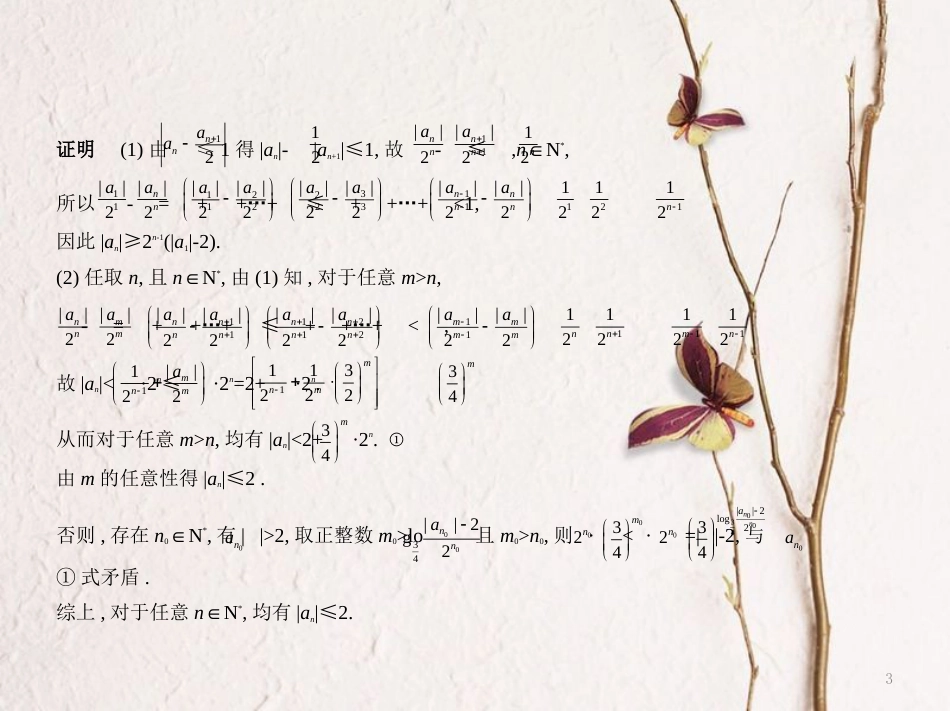 证明 (1) 由 |a_n - a_{n+1}/2| ≤ 1 得 |a_n|- 1/2 |a_{n+1}|≤1, 故 |a_n|/2^n - |a_{n+1}|/2^{n+1} ≤ 1/2^n ,n∈N*,
所以 |a_1|/2^1 - |a_n|/2^n = (|a_1|/2^1 - |a_2|/2^2) + (|a_2|/2^2 - |a_3|/2^3) +…+ (|a_{n-1}|/2^{n-1} - |a_n|/2^n) ≤ 1/2^1 + 1/2^2 +…+ 1/2^{n-1} <1,
因此 |a_n|≥2^{n-1}(|a_1|-2).
(2) 任取 n, 且 n∈N*, 由 (1) 知 , 对于任意 m>n,
|a_n|/2^n - |a_m|/2^m = (|a_n|/2^n - |a_{n+1}|/2^{n+1}) + (|a_{n+1}|/2^{n+1} - |a_{n+2}|/2^{n+2}) +…+ (|a_{m-1}|/2^{m-1} - |a_m|/2^m) ≤ 1/2^n + 1/2^{n+1} +…+ 1/2^{m-1} < 1/2^{n-1} ,
故 |a_n|< (1/2^{n-1} + |a_m|/2^m) ·2^n ≤ [1/2^{n-1} + 1/2^m · (3/2)^m] ·2^n=2+ (3/4)^m ·2^n.
从而对于任意 m>n, 均有 |a_n|<2+ (3/4)^m ·2^n. ①
由 m 的任意性得 |a_n|≤2 .
否则 , 存在 n_0∈N*, 有 |a_{n_0}|>2, 取正整数 m_0>log_{3/4} (|a_{n_0}|-2)/2^{n_0} 且 m_0>n_0, 则 2^{n_0} · (3/4)^{m_0} < 2^{n_0} · (3/4)^{log_{3/4} (|a_{n_0}|-2)/2^{n_0}} =|a_{n_0}|-2, 与
① 式矛盾 .
综上 , 对于任意 n∈N*, 均有 |a_n|≤2.
3